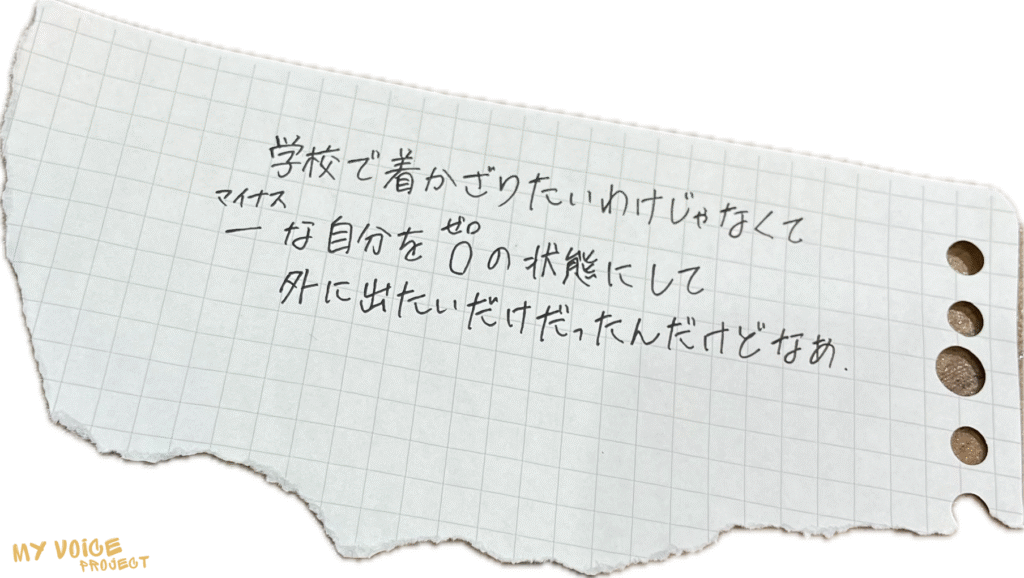 学校で着かざりたいわけじゃなくて
マイナス ゼロ
ーな自分を0の状態にして
外に出たいだけだったんだけどなぁ.
MY VOICE
PROJECT